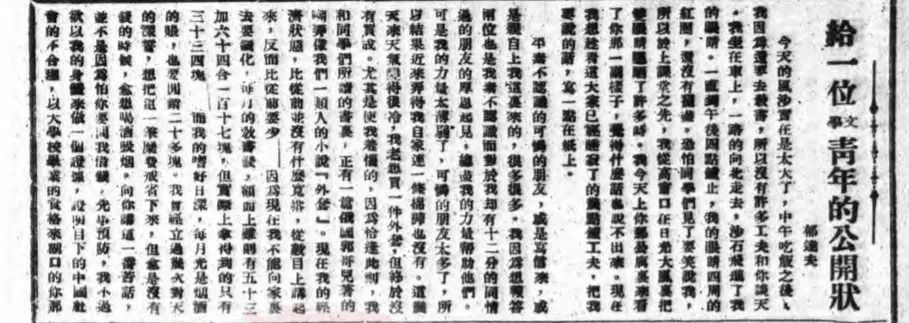 給一位文學青年的公開狀
郁達夫
今天的風沙實在是太大了,中午吃飯之後,
我因爲還要去教書,所以沒有許多工夫和你談天
。我坐在車上,一路的向北走去,沙石飛進了我
的眼睛。一直到午後四點鐘止,我的眼睛四周的
紅圈,還沒有褪盡。恐怕同學們見了要笑我,
所以於上課堂之先,我從高窗口在日光大風裏把
一雙眼睛曝曬了許多時。我今天上你那公寓裏來看
了你那一副樣子,覺得什麽話也說不出來。現在
我想趁着這大家已經睡寂了的幾點鐘工夫,把我
要說的話,寫一點在紙上。
平素不認識的可憐的朋友,或是寫信來,或
是親自上我這裏來的,很多很多。我因爲想報答
兩位也是我素不認識而對於我却有十二分的同情
過的朋友的厚恩起見,總盡我的力量幫助他們。
可是我的力量太薄弱了,可憐的朋友太多了,所
以結果近來弄得我自家連一條棉褲也沒有。這幾
天來天氣變得很冷,我老想買一件外套,但終於沒
有買成。尤其是使我羞惱的,因爲恰逢此刻,我
和同學們所讀的書裏,正有一篇俄國郭哥兒著的
嘲弄像我們一類人的小說『外套』。現在我的經
濟狀態,比從前並沒有什麽寬裕,從數目上講起
來,反而比從前要少——因爲現在我不能向家裏
去要錢化,每月的教書錢,額面上雖則有五十三
加六十四合一百十七塊,但實際上拿得到的只有
三十三四塊——而我的嗜好日深,每月光是烟酒
的賬,也要開銷二十多塊。我曾經立過幾次對天
的深誓,想把這一筆糜費戒省下來,但愈是沒有
錢的時候,愈想喝酒吸烟。向你講這一番苦話,
並不是因爲怕你要問我借錢,先事預防,我不過
欲以我的身體來做一個證據,證明目下的中國社
會的不合理,以大學校畢業的資格來糊口的你那